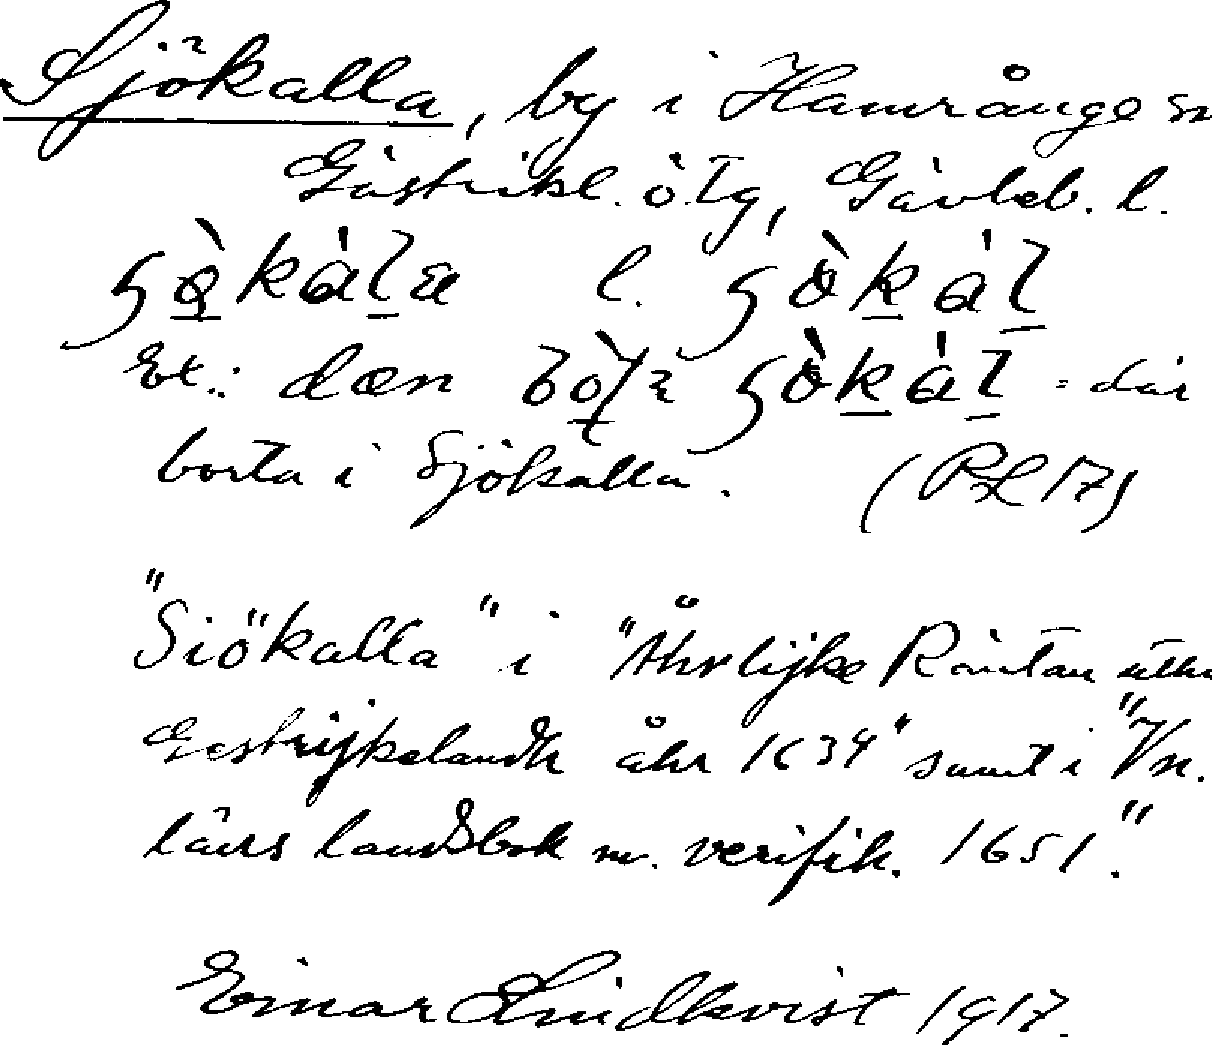 Sjökalla, by i Hamrånge sn
Gästrikl. ö. tg, Gävleb. l.
l.
Ex.: dæn = där
borta i Sjökalla. (RL 17)
"Siökalla" i "Åhrlijke Räntan uthu
Gestrijkelandh åhr 1634" samt i "Vn.
läns landsbok m. verifik. 1651."
Einar Lindkvist 1917.